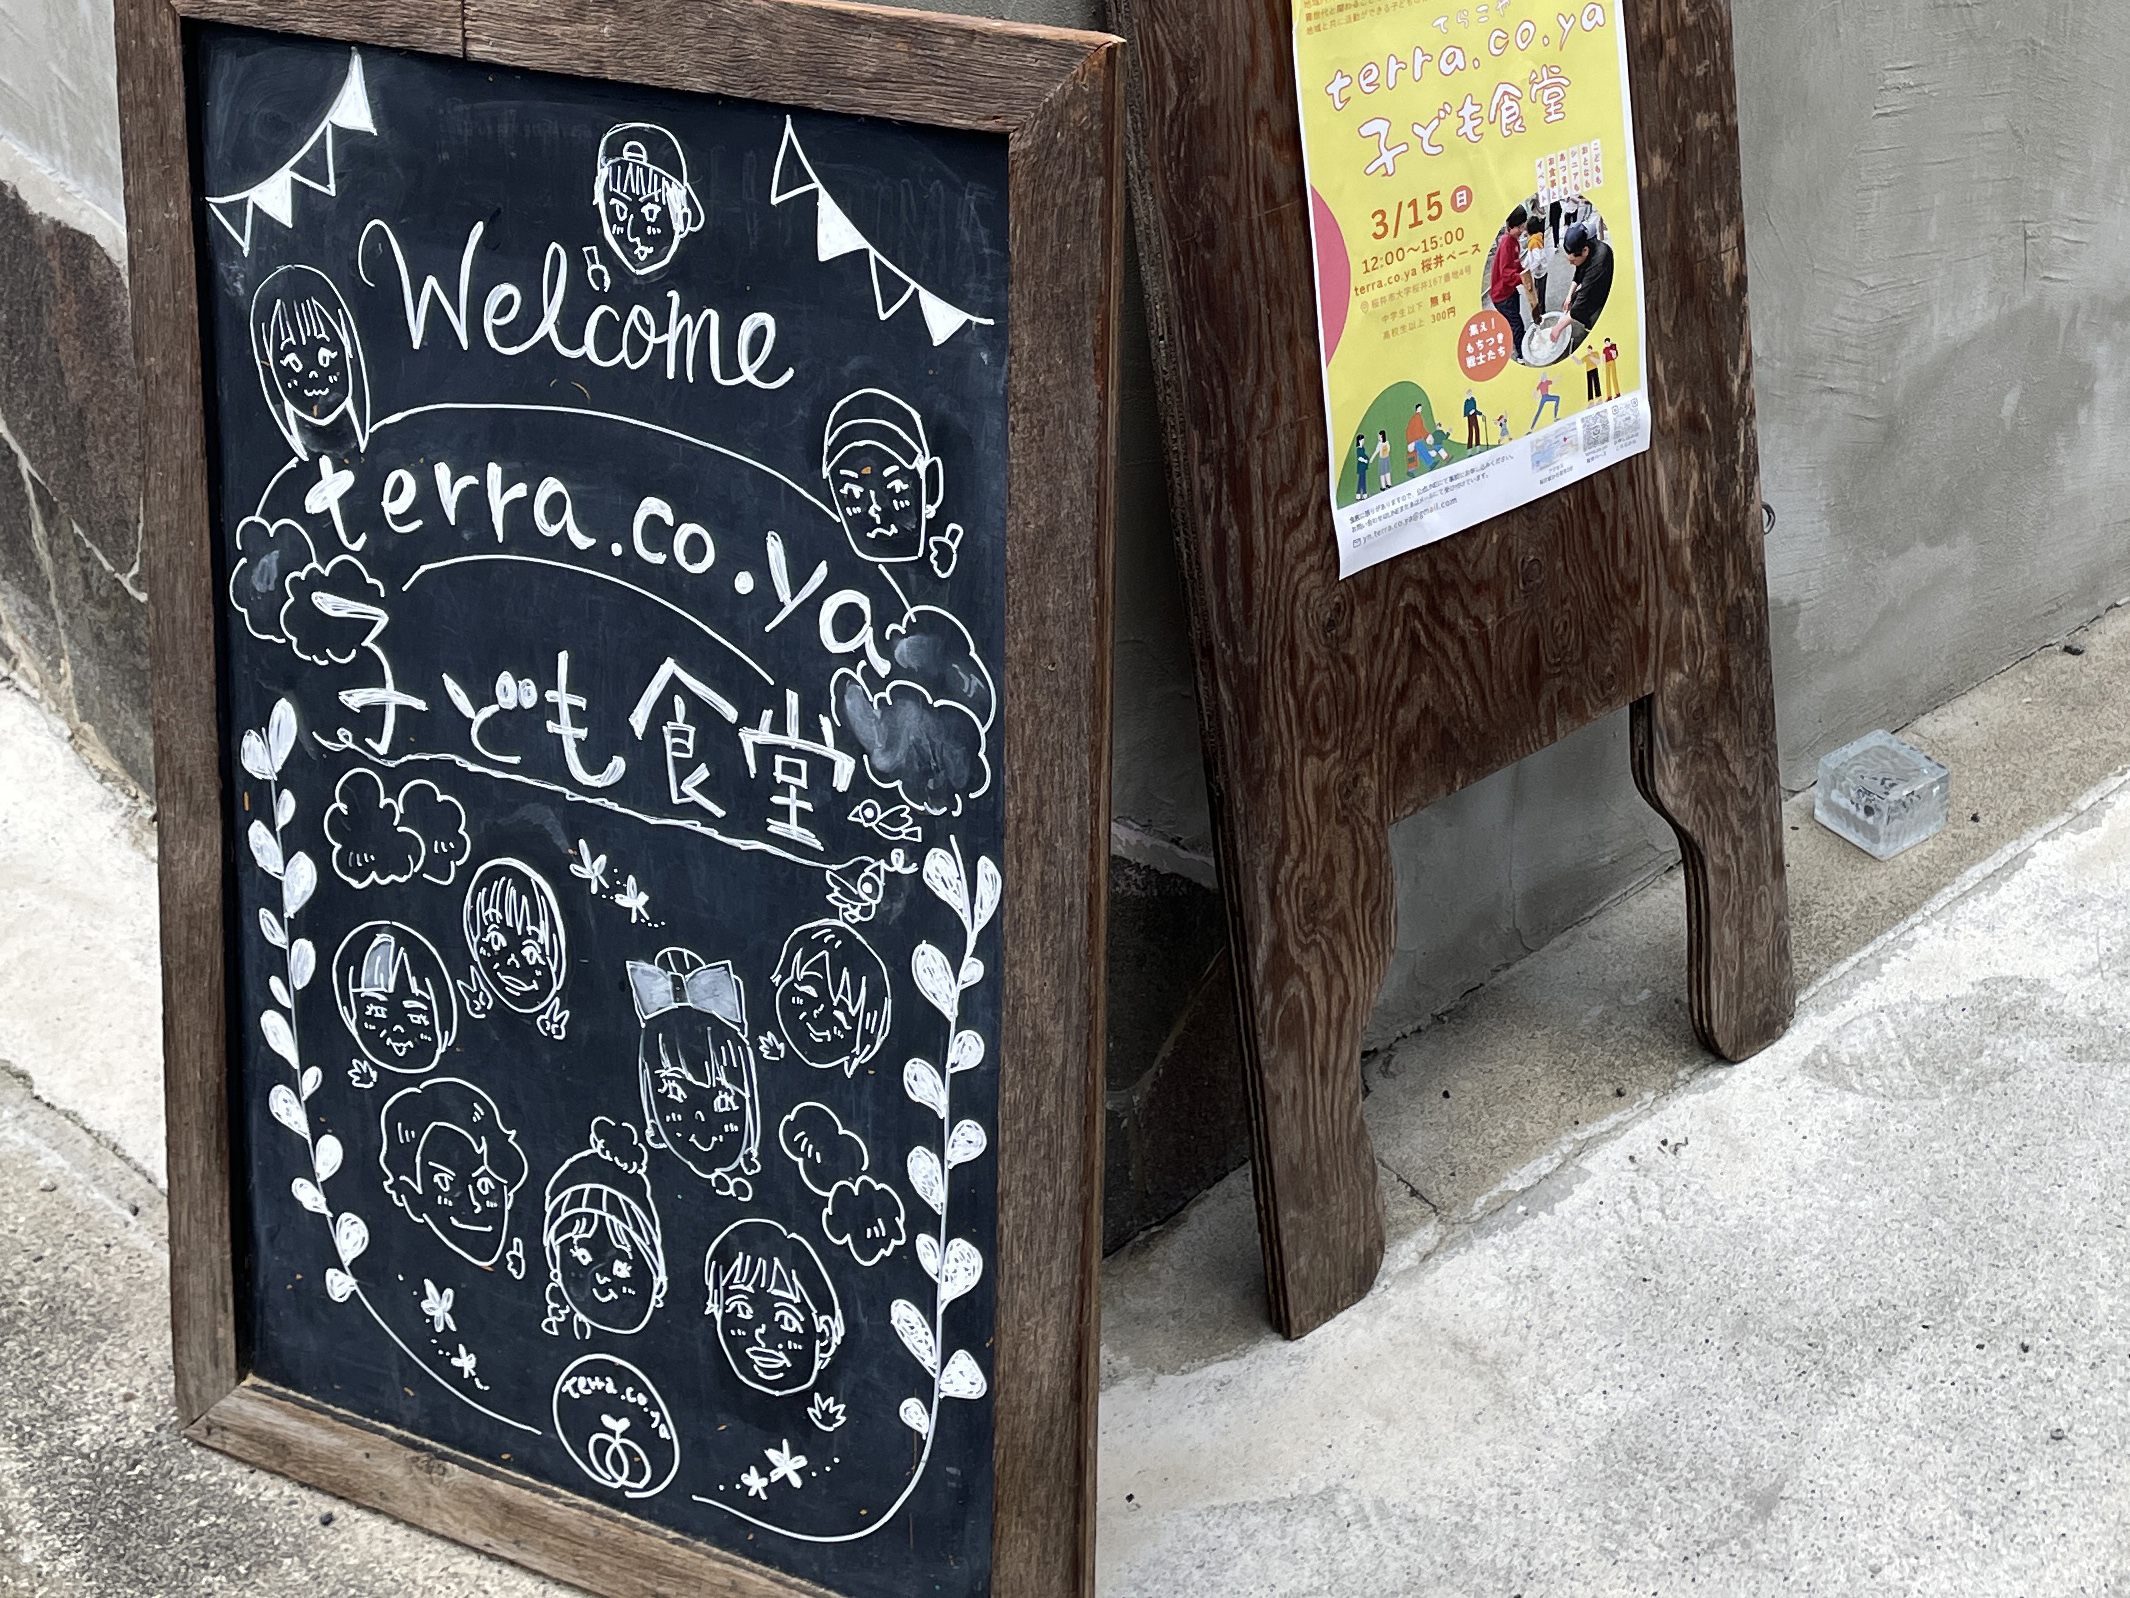 Welcome
terra.co.ya
子ども食堂
terra.co.ya
てらこや
terra.co.ya
子ども食堂
こどもも
おとなも
シニアも
あつまる
お食事と
イベント
3/15 日
12:00〜15:00
terra.co.ya 桜井ベース
桜井市大字桜井167番地4号
中学生以下 無料
高校生以上 300円
集え!
もちつき
戦士たち
yn.terra.co.ya@gmail.com